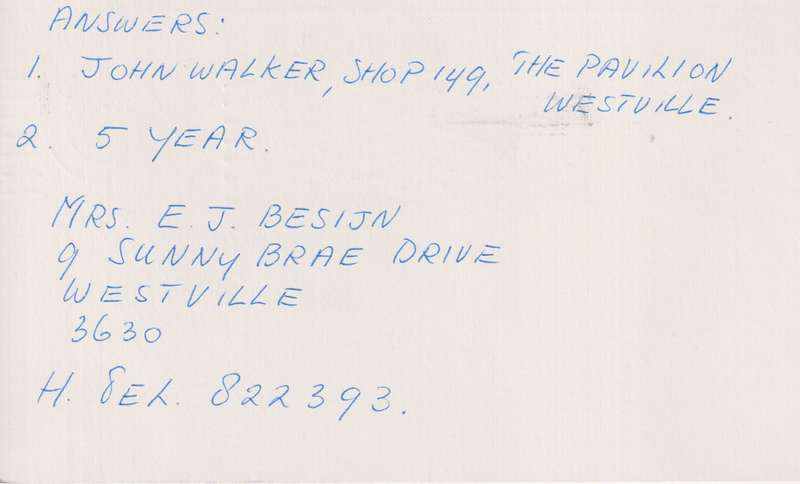 ANSWERS:
1. JOHN WALKER, SHOP 149, THE PAVILION
WESTVILLE.
2. 5 YEAR.
MRS. E. J. BESIJN
9 SUNNY BRAE DRIVE
WESTVILLE
3630
H. TEL. 822393.